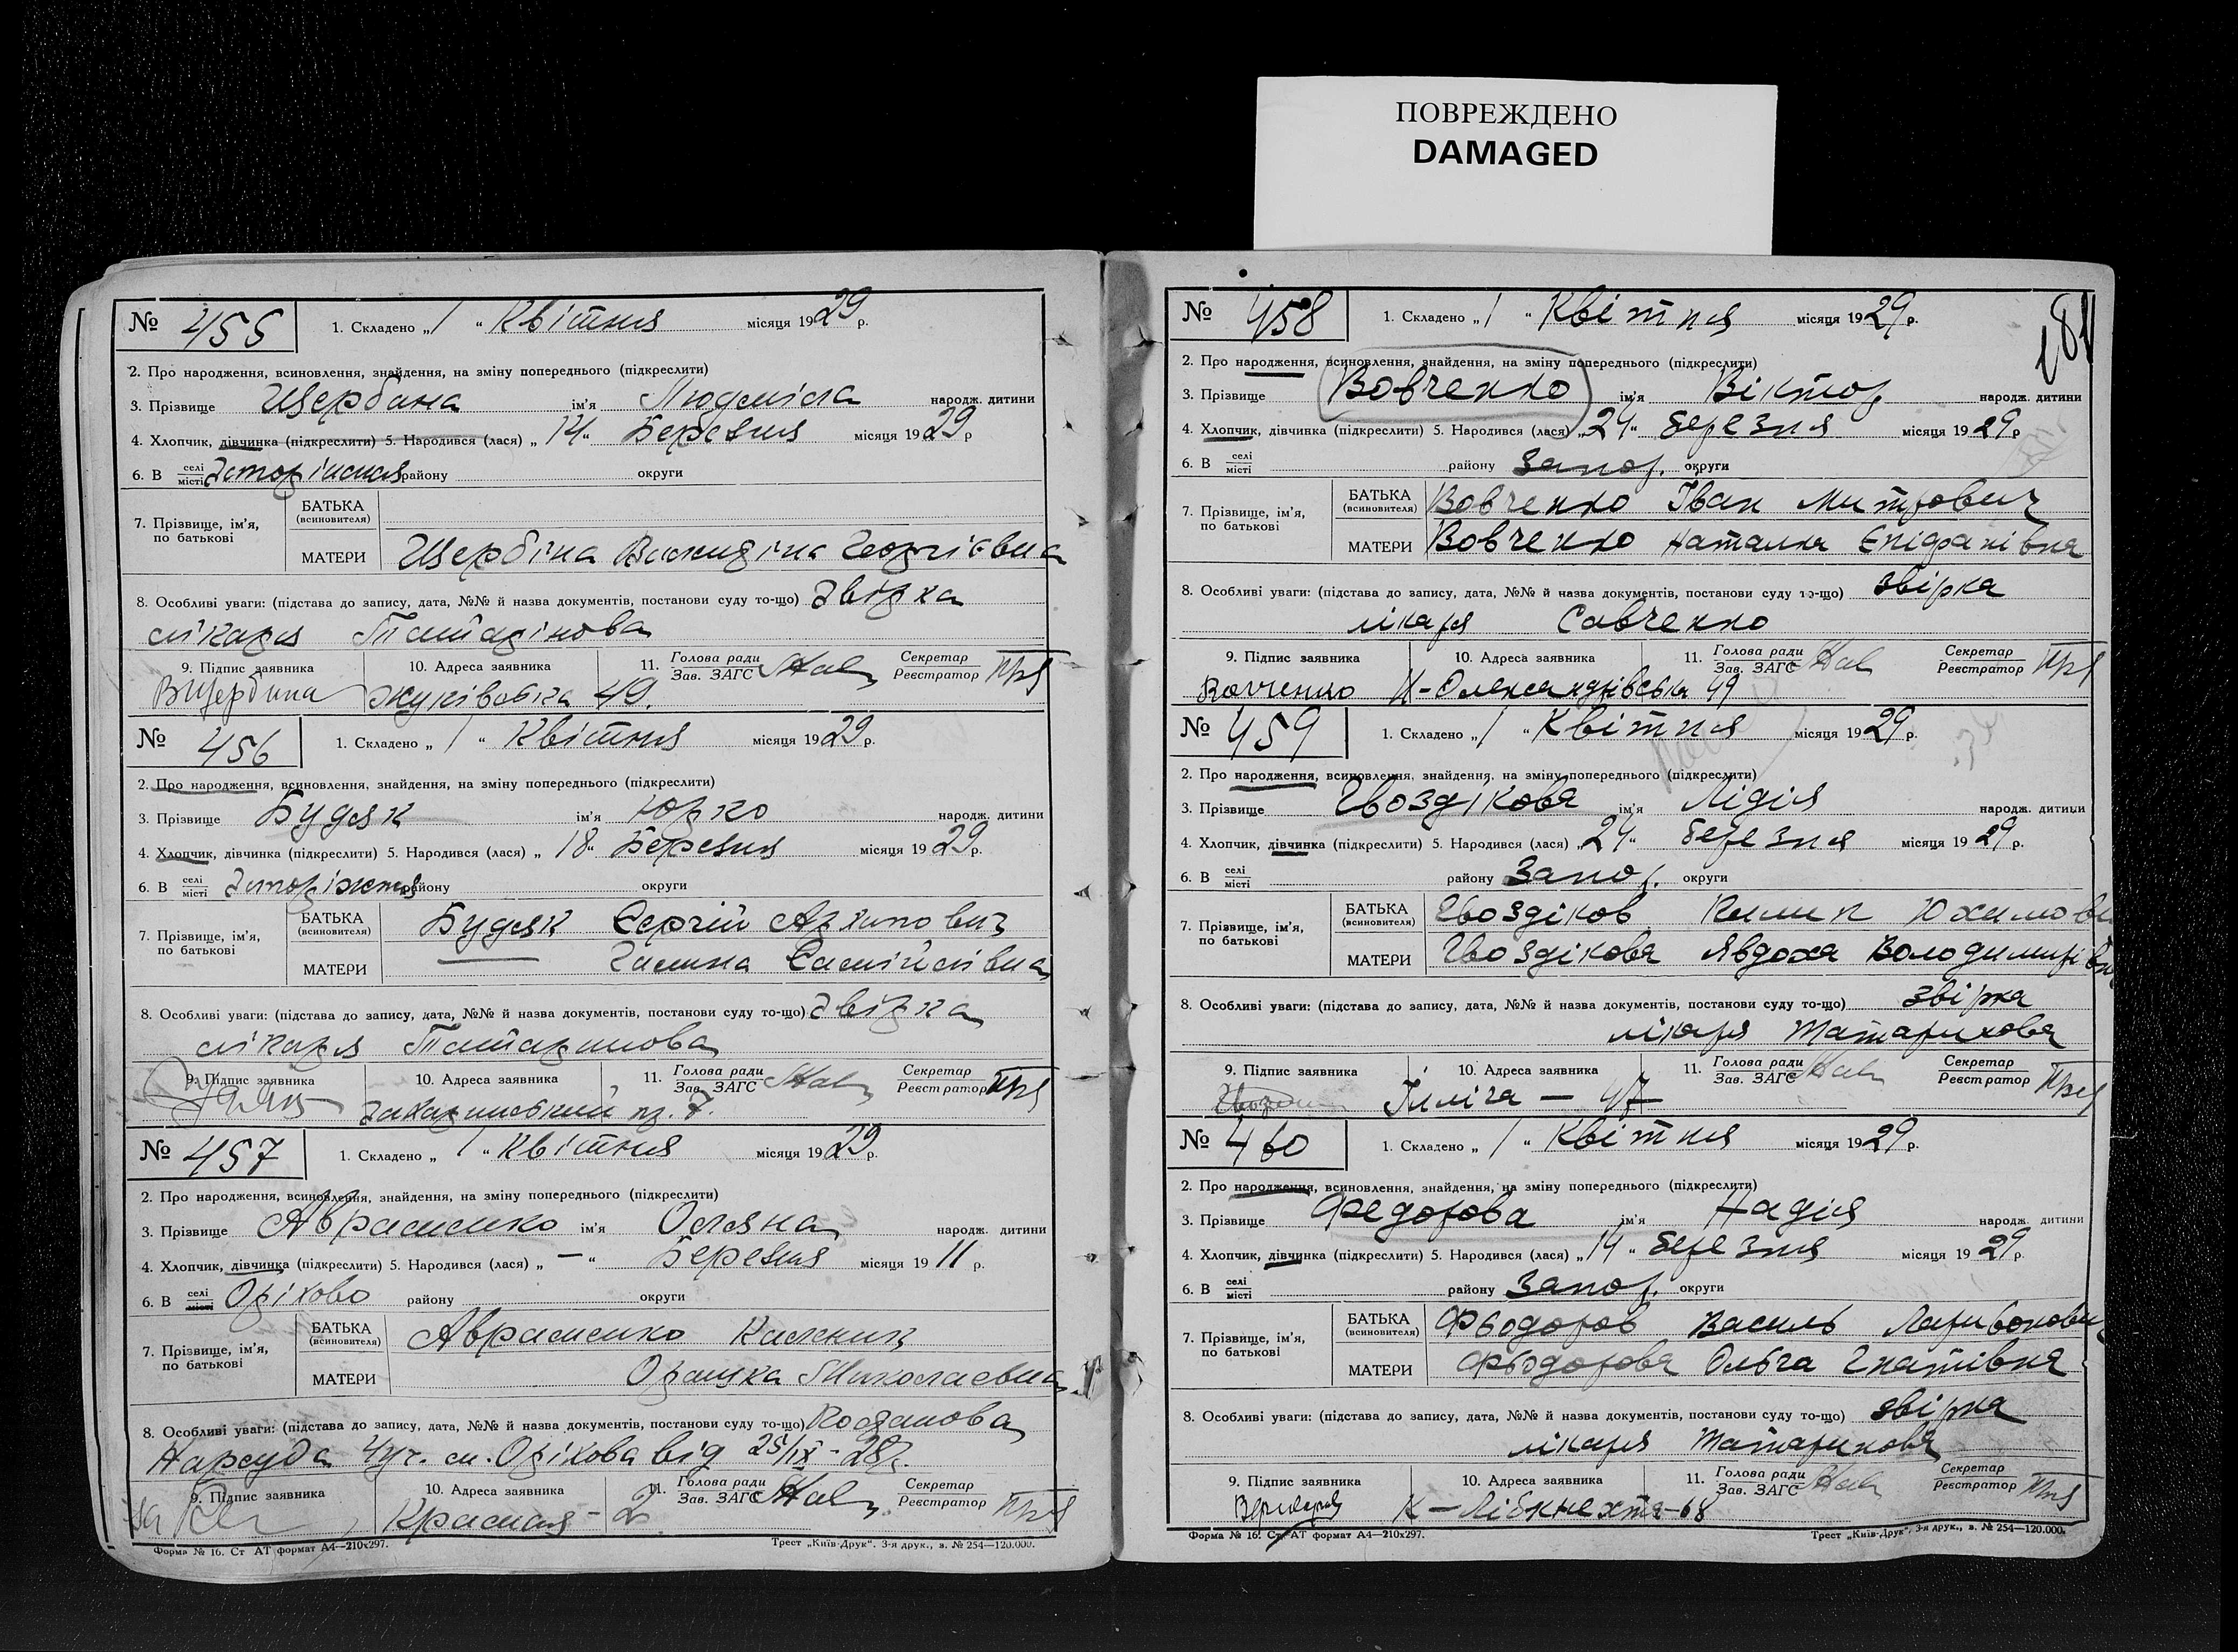 ПОВРЕЖДЕНО
DAMAGED
№ 455 1. Складено „1“ Квітня місяця 1929 р.
2. Про народження, всиновлення, знайдення, на зміну попереднього (підкреслити)
3. Прізвище Щербина ім'я Людміла народж. дитини
4. Хлопчик, дівчинка (підкреслити) 5. Народився (лася) „14“ Березня місяця 1929 р
6. В селі місті району округи
7. Прізвище, ім'я, по батькові БАТЬКА (всиновителя)
МАТЕРИ Щербіна Георгієвна
8. Особливі уваги: (підстава до запису, дата, №№ й назва документів, постанови суду то-що) Звірка
лікаря Татарінова
9. Підпис заявника 10. Адреса заявника 11. Голова ради Зав. ЗАГС Секретар Реєстратор
ВЩербина Жуківська 49.
№ 456 1. Складено „1“ Квітня місяця 1929 р.
2. Про народження, всиновлення, знайдення, на зміну попереднього (підкреслити)
3. Прізвище Будяк ім'я Юрко народж. дитини
4. Хлопчик, дівчинка (підкреслити) 5. Народився (лася) „18“ Березня місяця 1929 р.
6. В селі місті Запоріжжя району округи
7. Прізвище, ім'я, по батькові БАТЬКА (всиновителя) Будяк Сергій Архипович
МАТЕРИ Галина
8. Особливі уваги: (підстава до запису, дата, №№ й назва документів, постанови суду то-що) Звірка
лікаря Татаринова
9. Підпис заявника 10. Адреса заявника 11. Голова ради Зав. ЗАГС Секретар Реєстратор
7.
№ 457 1. Складено „1“ Квітня місяця 1929 р.
2. Про народження, всиновлення, знайдення, на зміну попереднього (підкреслити)
3. Прізвище Авраменко ім'я Оляна народж. дитини
4. Хлопчик, дівчинка (підкреслити) 5. Народився (лася) „—“ Березня місяця 1911 р.
6. В селі місті Оріхово району округи
7. Прізвище, ім'я, по батькові БАТЬКА (всиновителя) Авраменко Калник
МАТЕРИ Оришка Миколаевна
8. Особливі уваги: (підстава до запису, дата, №№ й назва документів, постанови суду то-що) Постанова
Нарсуда 4уч. м. Оріхова від 25/IX-28р.
9. Підпис заявника 10. Адреса заявника 11. Голова ради Зав. ЗАГС Секретар Реєстратор
Красная - 2
Форма № 16. Ст АТ формат А4—210х297. Трест „Київ-Друк“. 3-я друк., з. № 254—120.000.
181
№ 458 1. Складено „1“ Квітня місяця 1929 р.
2. Про народження, всиновлення, знайдення, на зміну попереднього (підкреслити)
3. Прізвище Вовченко ім'я Віктор народж. дитини
4. Хлопчик, дівчинка (підкреслити) 5. Народився (лася) „24“ березня місяця 1929 р
6. В селі місті району Запор. округи
7. Прізвище, ім'я, по батькові БАТЬКА (всиновителя) Вовченко Іван Митрович
МАТЕРИ Вовченко Наталка Епіфанівна
8. Особливі уваги: (підстава до запису, дата, №№ й назва документів, постанови суду то-що) звірка
лікаря Савченко
9. Підпис заявника 10. Адреса заявника 11. Голова ради Зав. ЗАГС Секретар Реєстратор
Вовченко Н-Олександрівська 49
№ 459 1. Складено „1“ Квітня місяця 1929 р.
2. Про народження, всиновлення, знайдення, на зміну попереднього (підкреслити)
3. Прізвище Гвоздікова ім'я Лідія народж. дитини
4. Хлопчик, дівчинка (підкреслити) 5. Народився (лася) „24“ березня місяця 1929 р.
6. В селі місті району Запор. округи
7. Прізвище, ім'я, по батькові БАТЬКА (всиновителя) Гвоздіков Клим Юхимови
МАТЕРИ Гвоздікова Явдоха Володимирівна
8. Особливі уваги: (підстава до запису, дата, №№ й назва документів, постанови суду то-що) звірка
лікаря Татаринова
9. Підпис заявника 10. Адреса заявника 11. Голова ради Зав. ЗАГС Секретар Реєстратор
Ілліча — 47
№ 460 1. Складено „1“ Квітня місяця 1929 р.
2. Про народження, всиновлення, знайдення, на зміну попереднього (підкреслити)
3. Прізвище Федорова ім'я Надія народж. дитини
4. Хлопчик, дівчинка (підкреслити) 5. Народився (лася) „14“ березня місяця 1929 р.
6. В селі місті району Запор. округи
7. Прізвище, ім'я, по батькові БАТЬКА (всиновителя) Фьодоров Василь Ларивонович
МАТЕРИ Фьодорова Ольга Гнатівна
8. Особливі уваги: (підстава до запису, дата, №№ й назва документів, постанови суду то-що) звірка
лікаря Татаринова
9. Підпис заявника 10. Адреса заявника 11. Голова ради Зав. ЗАГС Секретар Реєстратор
К — Лібкнехта-68
Форма № 16. Ст. АТ формат А4—210х297. Трест „Київ-Друк“, 3-я друк., з. № 254—120.000.